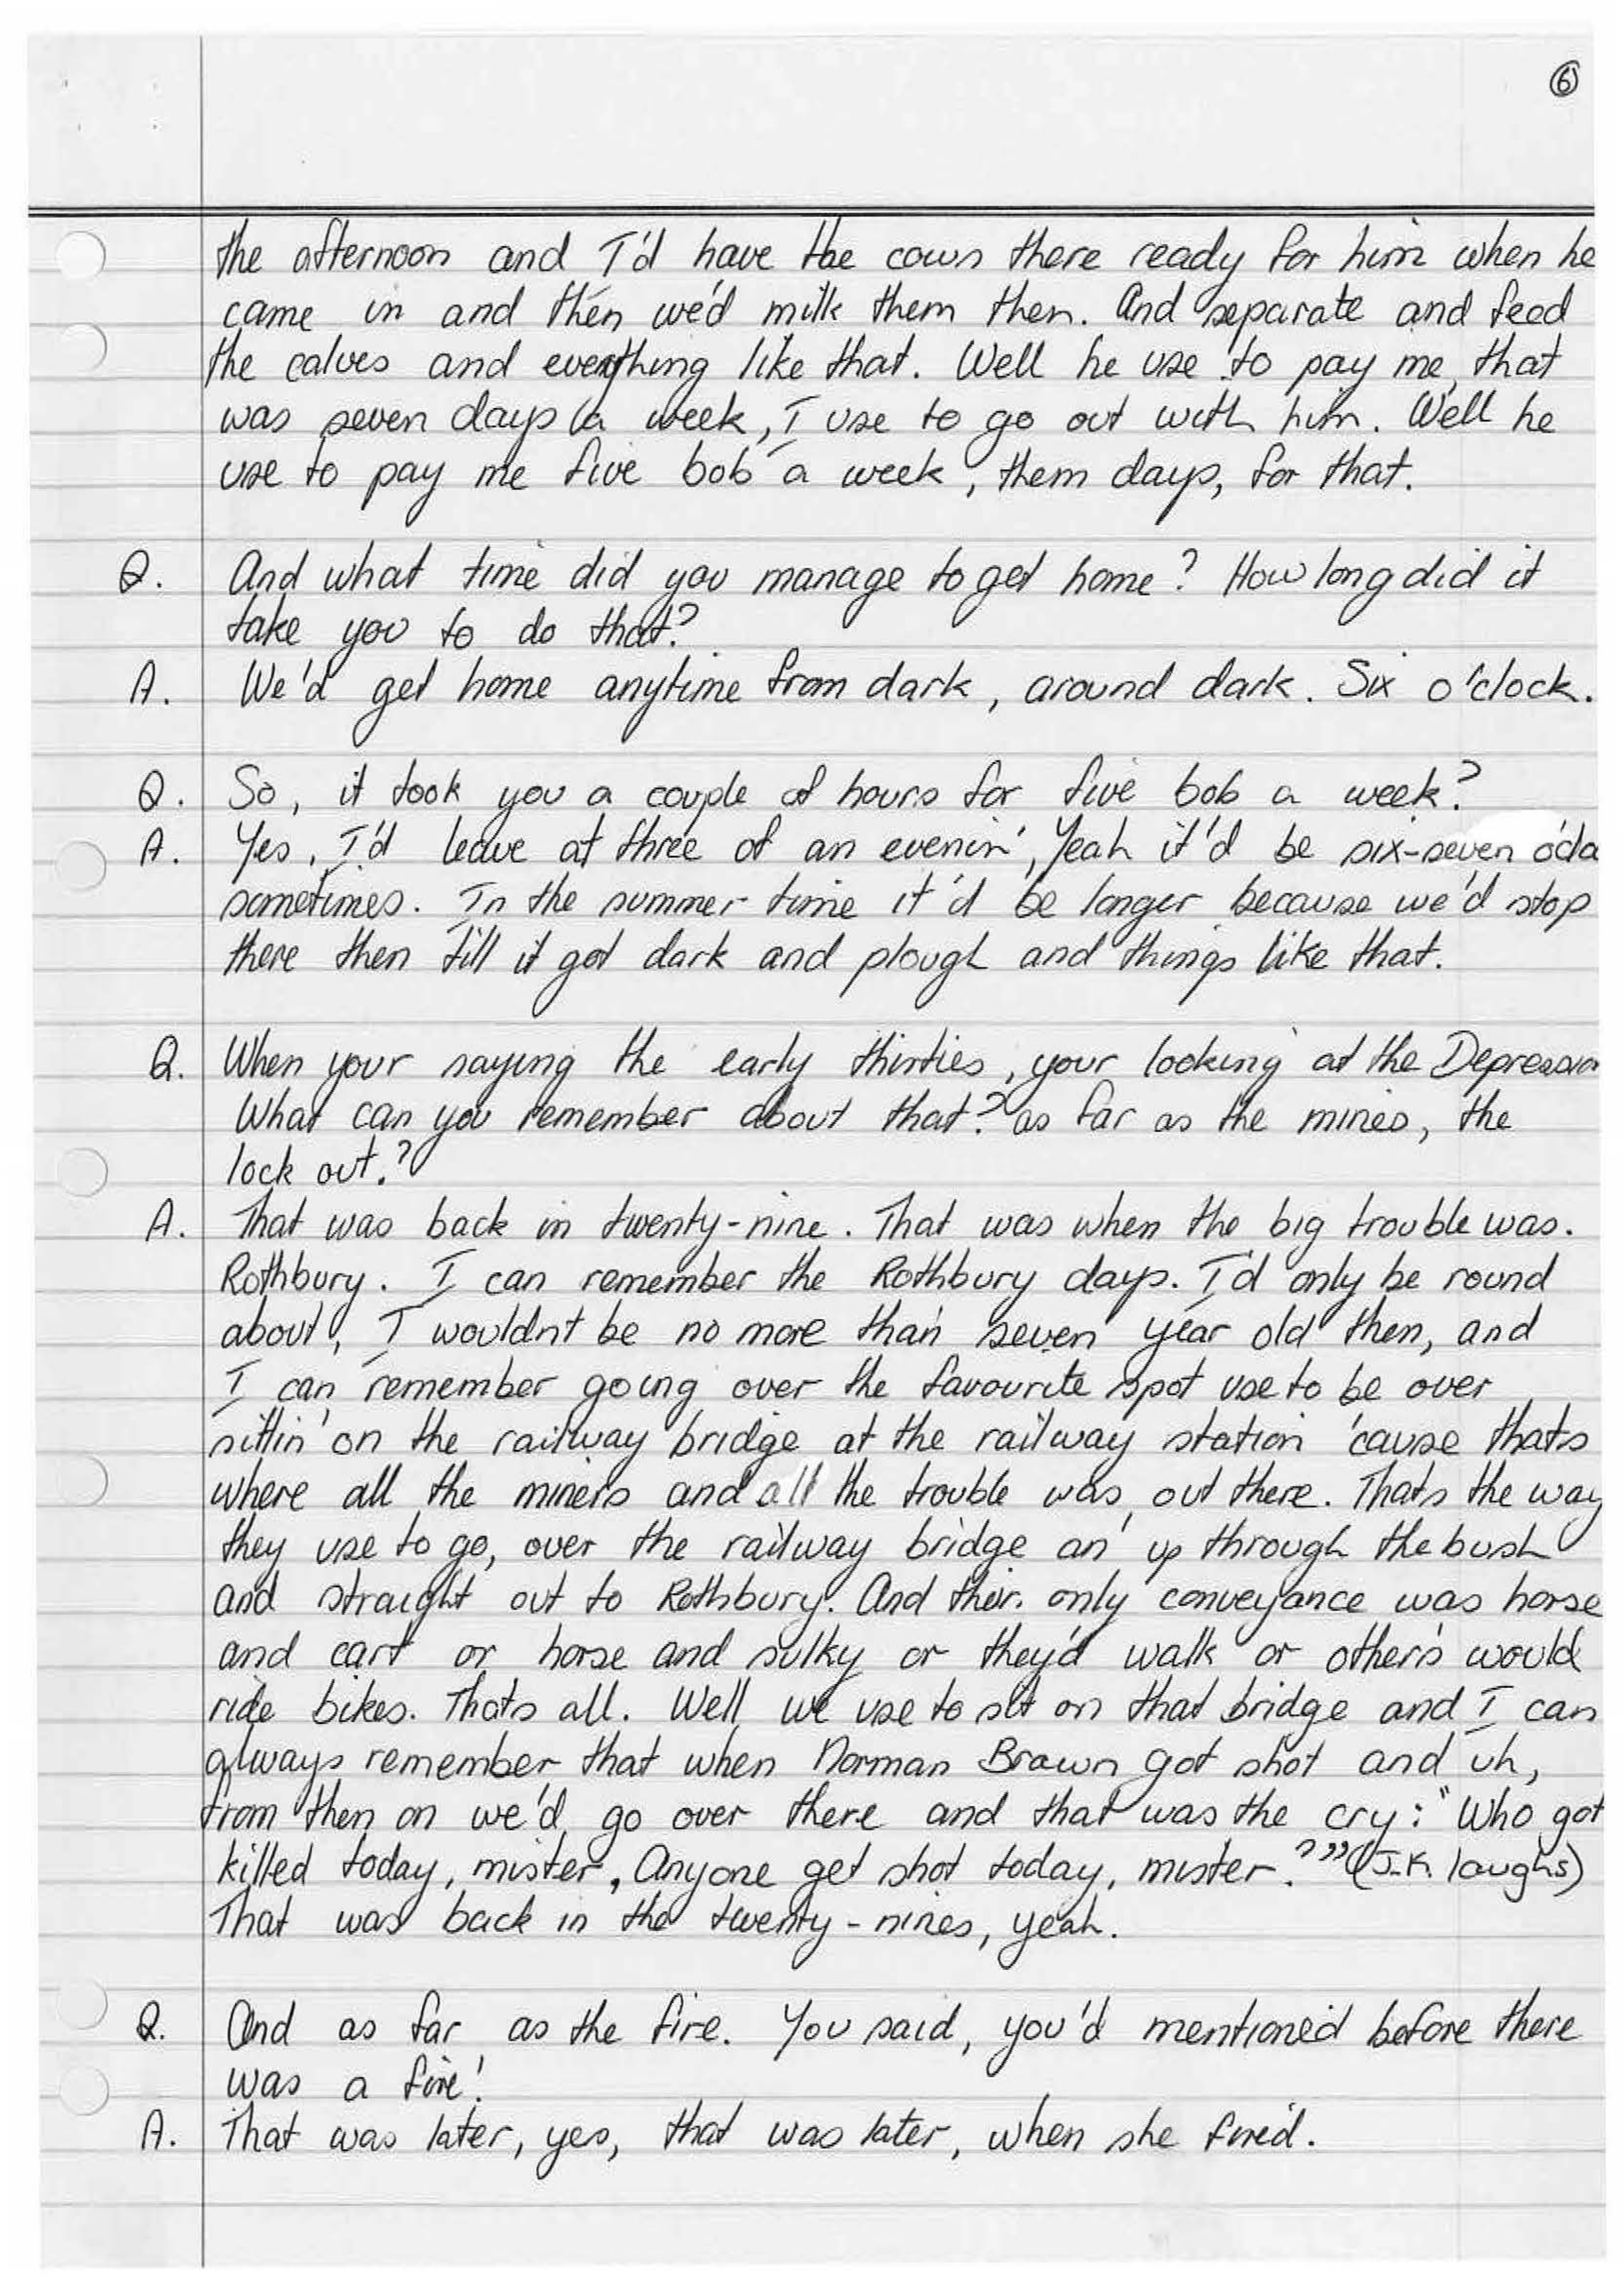 6
the afternoon and I'd have the cows there ready for him when he
came in and then we'd milk them then. And separate and feed
the calves and everything like that. Well he use to pay me, that
was seven days a week, I use to go out with him. Well he
use to pay me five bob a week, them days, for that.
Q. And what time did you manage to get home? How long did it
take you to do that?
A. We'd get home anytime from dark, around dark. Six o'clock.
Q. So, it took you a couple of hours for five bob a week?
A. Yes, I'd leave at three of an evenin', Yeah it'd be six-seven o'clo
sometimes. In the summer time it'd be longer because we'd stop
there then till it got dark and plough and things like that.
Q. When your saying the early thirties, your looking at the Depressio
What can you remember about that? as far as the mines, the
lock out.?
A. That was back in twenty-nine. That was when the big trouble was.
Rothbury. I can remember the Rothbury days. I'd only be round
about, I wouldn't be no more than seven year old then, and
I can remember going over the favourite spot use to be over
sittin' on the railway bridge at the railway station 'cause thats
where all the miners and all the trouble was, out there. Thats the way
they use to go, over the railway bridge an' up through the bush
and straight out to Rothbury. And their only conveyance was horse
and cart or horse and sulky or they'd walk or others would
ride bikes. Thats all. Well we use to sit on that bridge and I can
always remember that when Norman Brown got shot and uh,
from then on we'd go over there and that was the cry: "Who got
killed today, mister, Anyone get shot today, mister.?" (J.K. laughs)
That was back in the twenty-nines, yeah.
Q. And as far as the fire. You said, you'd mentioned before there
was a fire!
A. That was later, yes, that was later, when she fired.